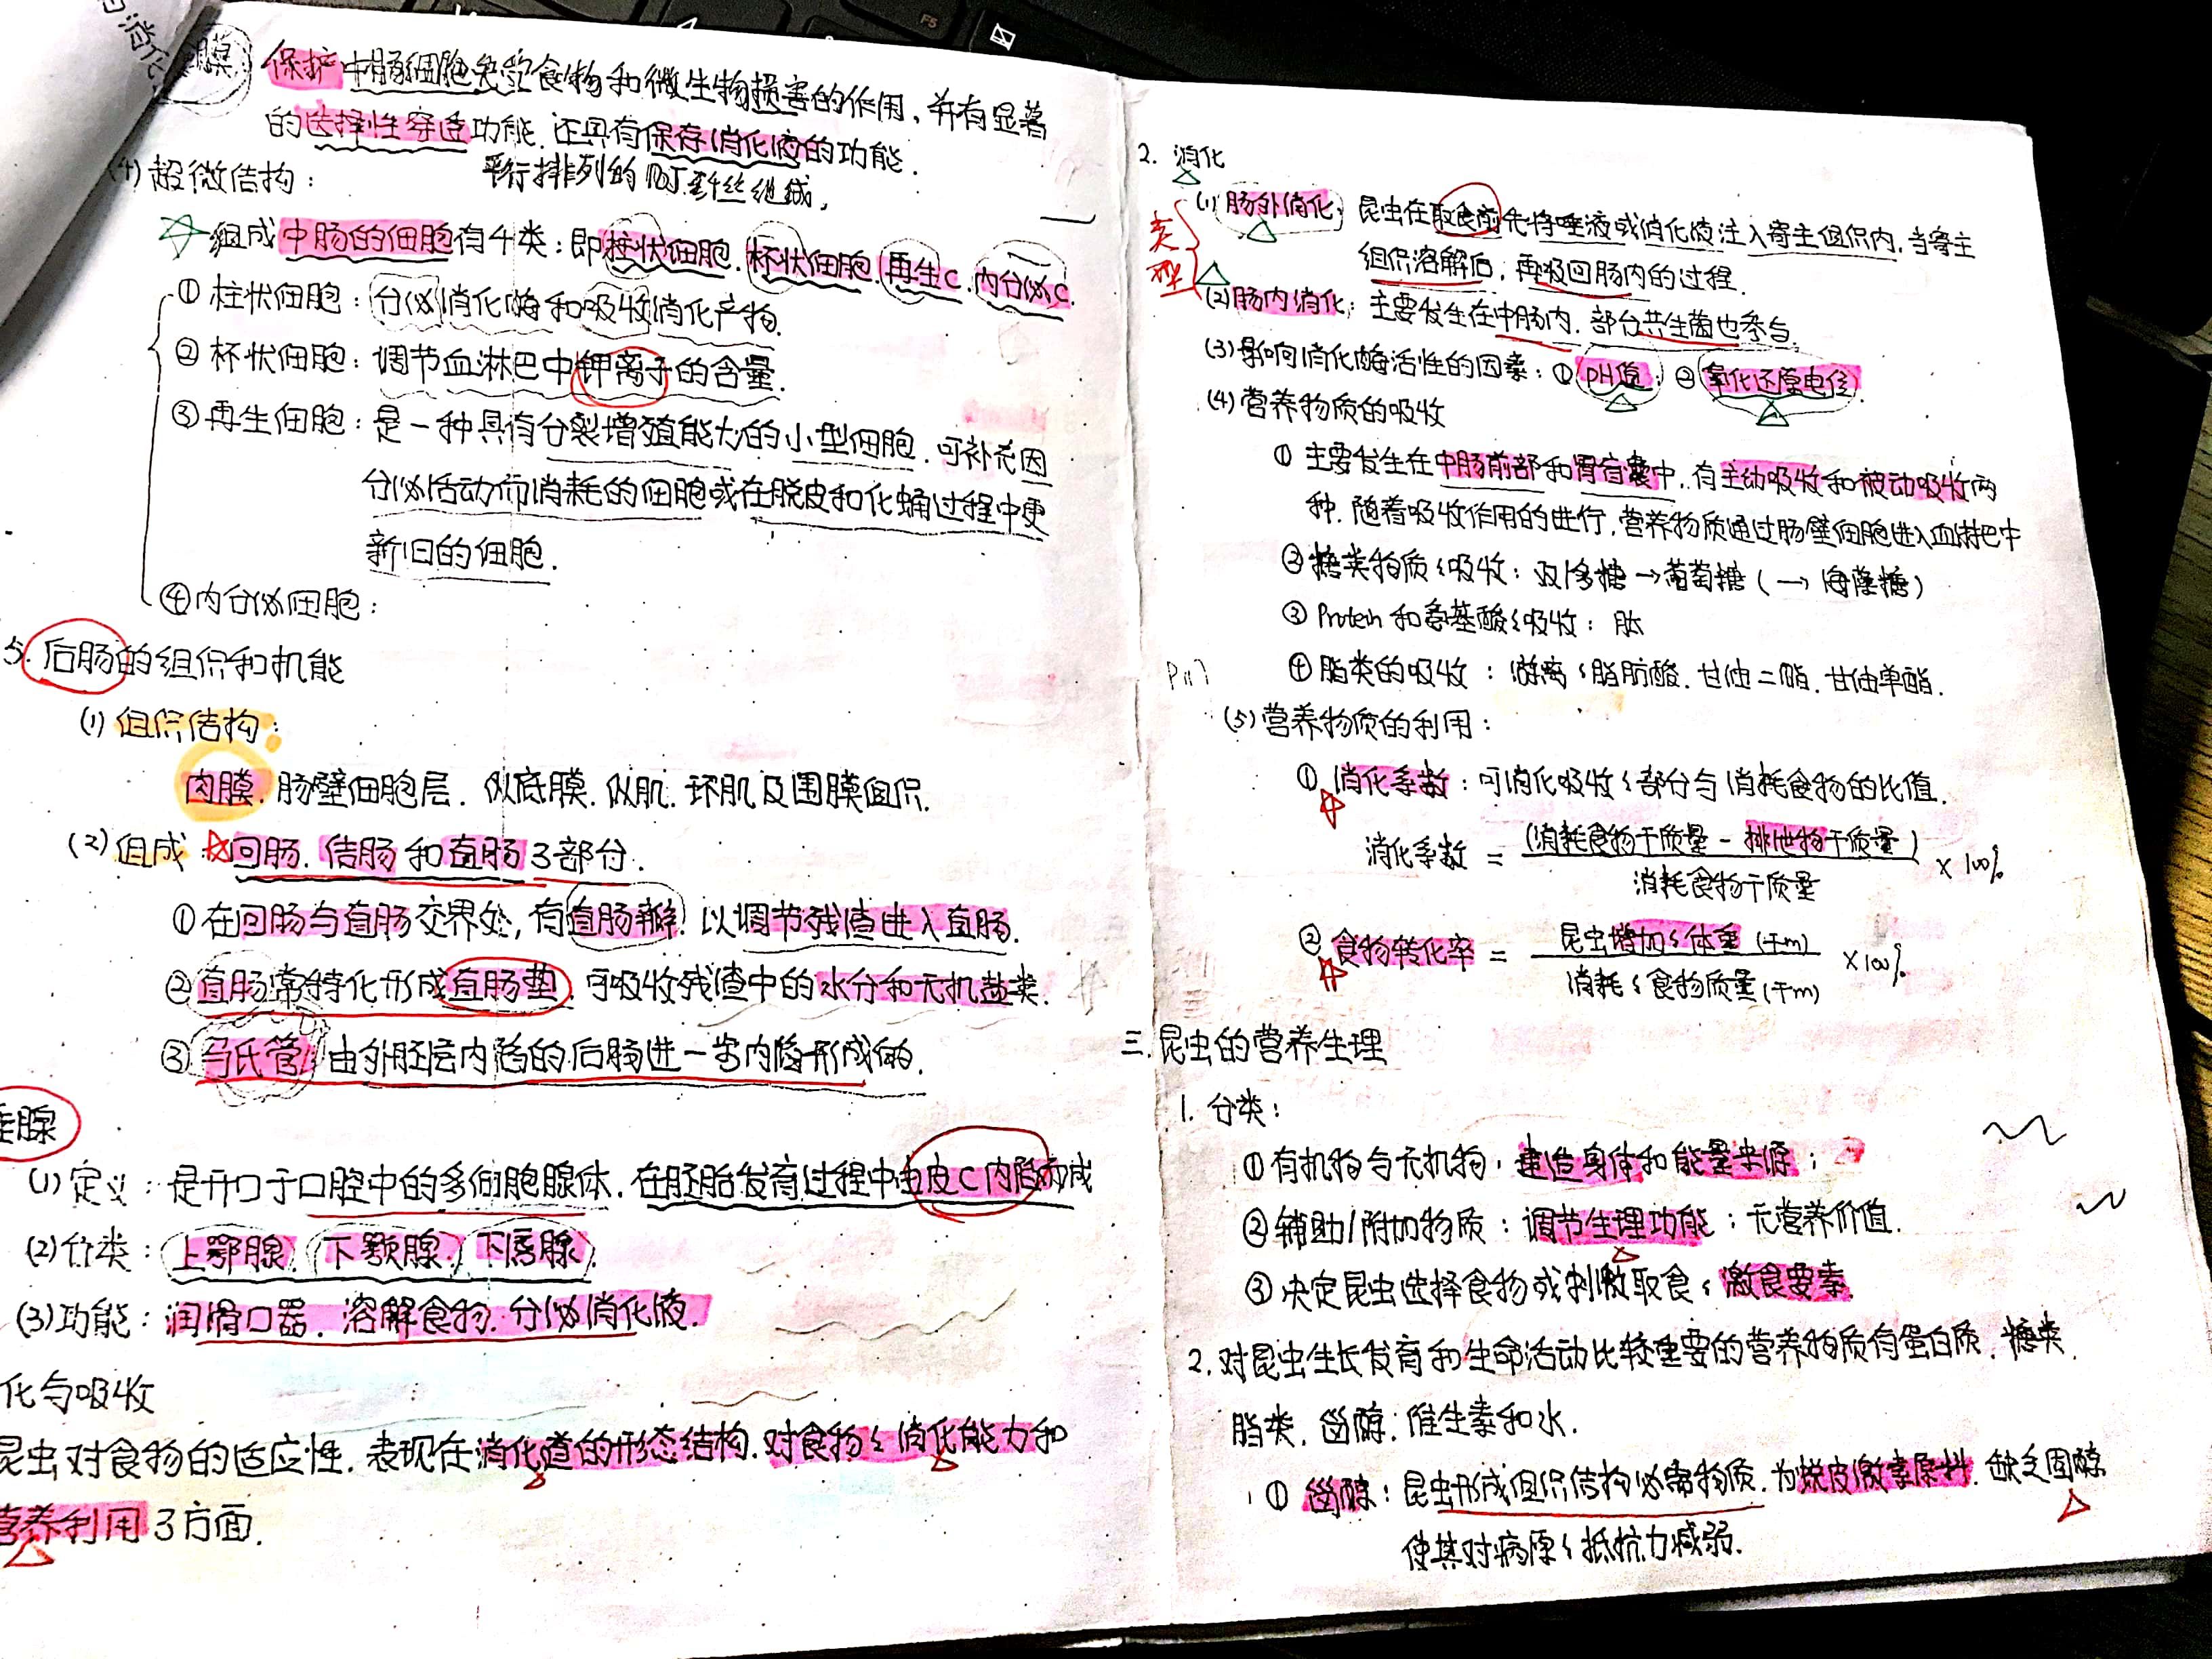 膜 保护中肠细胞免受食物和微生物损害的作用，并有显著
的选择性穿透功能. 还具有保存消化液的功能.
(4) 超微结构： 平行排列的几丁丝组成,
组成中肠的细胞有4类：即柱状细胞. 杯状细胞. 再生C. 内分泌C.
① 柱状细胞：分泌消化酶和吸收消化产物.
② 杯状细胞：调节血淋巴中钾离子的含量.
③ 再生细胞：是一种具有分裂增殖能力的小型细胞. 可补充因
分泌活动而消耗的细胞或在脱皮和化蛹过程中更
新旧的细胞.
④ 内分泌细胞：
5. 后肠的组织和机能
(1) 组织结构：
内膜. 肠壁细胞层. 似底膜. 纵肌. 环肌及围膜组织.
(2) 组成：回肠. 结肠和直肠3部分.
① 在回肠与直肠交界处, 有直肠瓣. 以调节残渣进入直肠.
② 直肠常特化形成直肠垫. 可吸收残渣中的水分和无机盐类.
③ 马氏管：由外胚层内陷的后肠进一步内陷形成的.
唾腺
(1) 定义：是开口于口腔中的多细胞腺体. 在胚胎发育过程中由皮C内陷而成
(2) 分类：上颚腺. 下颚腺. 下唇腺.
(3) 功能：润滑口器. 溶解食物. 分泌消化液.
化与吸收
昆虫对食物的适应性. 表现在消化道的形态结构. 对食物的消化能力和
营养利用3方面.
2. 消化
类型
(1) 肠外消化：昆虫在取食前先将唾液或消化液注入寄主组织内, 当寄主
组织溶解后, 再吸回肠内的过程.
(2) 肠内消化：主要发生在中肠内. 部分共生菌也参与.
(3) 影响消化酶活性的因素：① pH值; ② 氧化还原电位.
(4) 营养物质的吸收
① 主要发生在中肠前部和胃盲囊中. 有主动吸收和被动吸收两
种. 随着吸收作用的进行, 营养物质通过肠壁细胞进入血淋巴中
② 糖类物质的吸收：双/多糖→葡萄糖（→海藻糖）
③ Protein和氨基酸的吸收：肽
P117
④ 脂类的吸收：游离的脂肪酸. 甘油二酯. 甘油单酯.
(5) 营养物质的利用：
① 消化系数：可消化吸收的部分与消耗食物的比值.
消化系数 = (消耗食物干质量 - 排泄物干质量) / 消耗食物干质量 × 100%
② 食物转化率 = 昆虫增加的体重(干m) / 消耗的食物质量(干m) ×100%
三. 昆虫的营养生理
1. 分类：
① 有机物与无机物：建造身体和能量来源；
② 辅助/附加物质：调节生理功能；无营养价值.
③ 决定昆虫选择食物或刺激取食的激食要素.
2. 对昆虫生长发育和生命活动比较重要的营养物质有蛋白质. 糖类.
脂类. 甾醇. 维生素和水.
① 甾醇：昆虫形成组织结构必需物质. 为蜕皮激素原料. 缺乏固醇
使其对病原的抵抗力减弱.